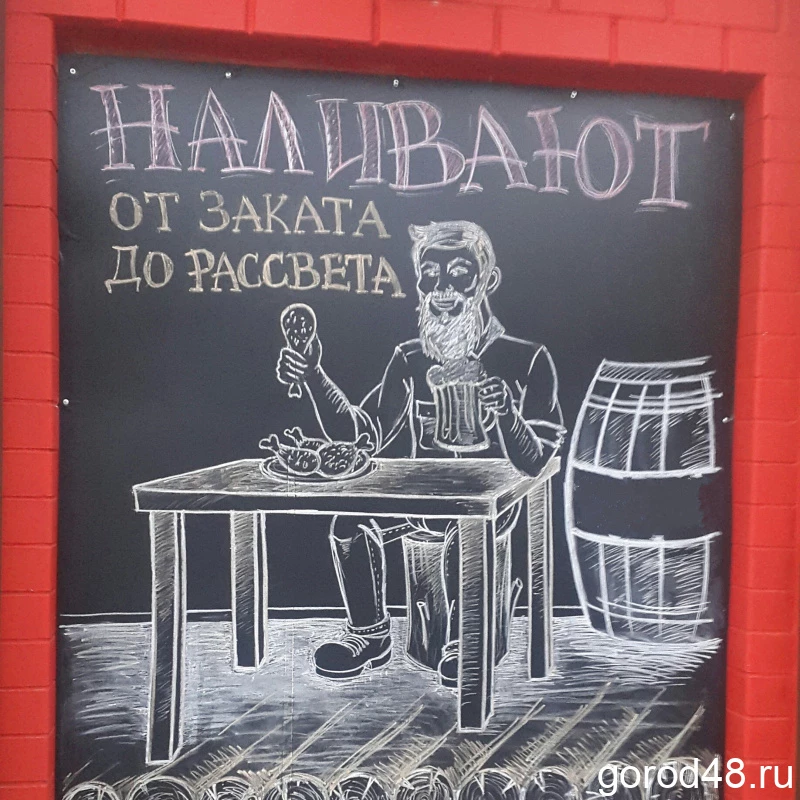 НАЛИВАЮТ
ОТ ЗАКАТА
ДО РАССВЕТА
gorod48.ru